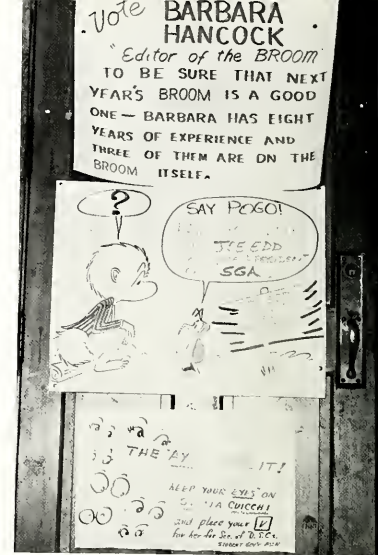 Vote BARBARA
HANCOCK
"Editor of the BROOM"
TO BE SURE THAT NEXT
YEAR'S BROOM IS A GOOD
ONE — BARBARA HAS EIGHT
YEARS OF EXPERIENCE AND
THREE OF THEM ARE ON THE
BROOM ITSELF.
?
SAY POGO!
EDD
SGA
THE
IT!
KEEP YOUR EYES ON
CUICCHI
and place your V
for her for Sec. of D.S.C.